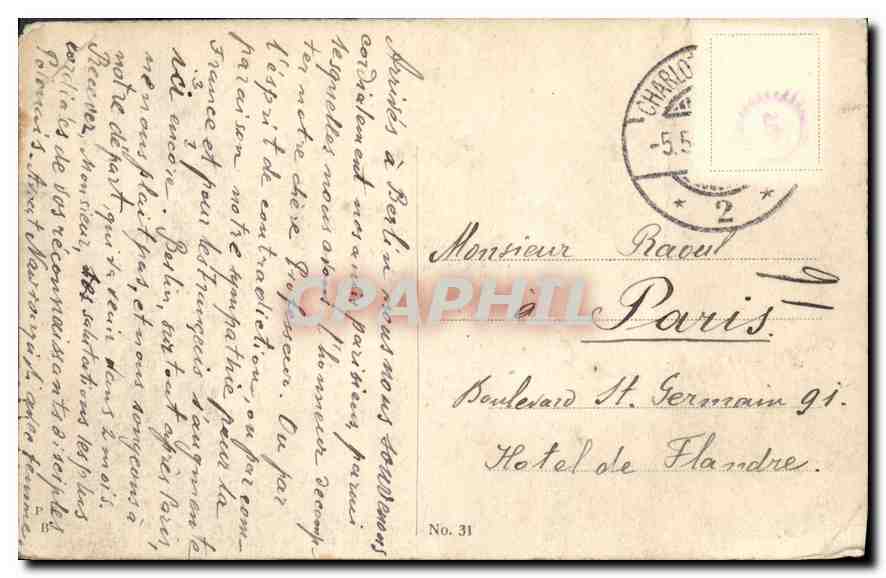 Arrivés à Berlin nous nous souvenons
cordialement nos amis parisiens, parmi
lesquelles nous avons l'honneur de comp-
ter notre chère Professeur. Ou par
l'esprit de contradiction, ou par com-
paraison notre sympathie pour la
France et pour les français s'augmente
ici encore. Berlin, surtout après Paris,
me nous plait pas, et nous songeons à
notre départ, qui va venir dans 2 mois.
Recevez, Monsieur, nos salutations les plus
cordiales de vos reconnaissants disciples
Polonais. avec femme.
CHARLO
-5.5
* 2 *
Monsieur Raoul
à Paris
Boulevard St. Germain 91.
Hotel de Flandre.
P
B
No. 31
CPAPHIL